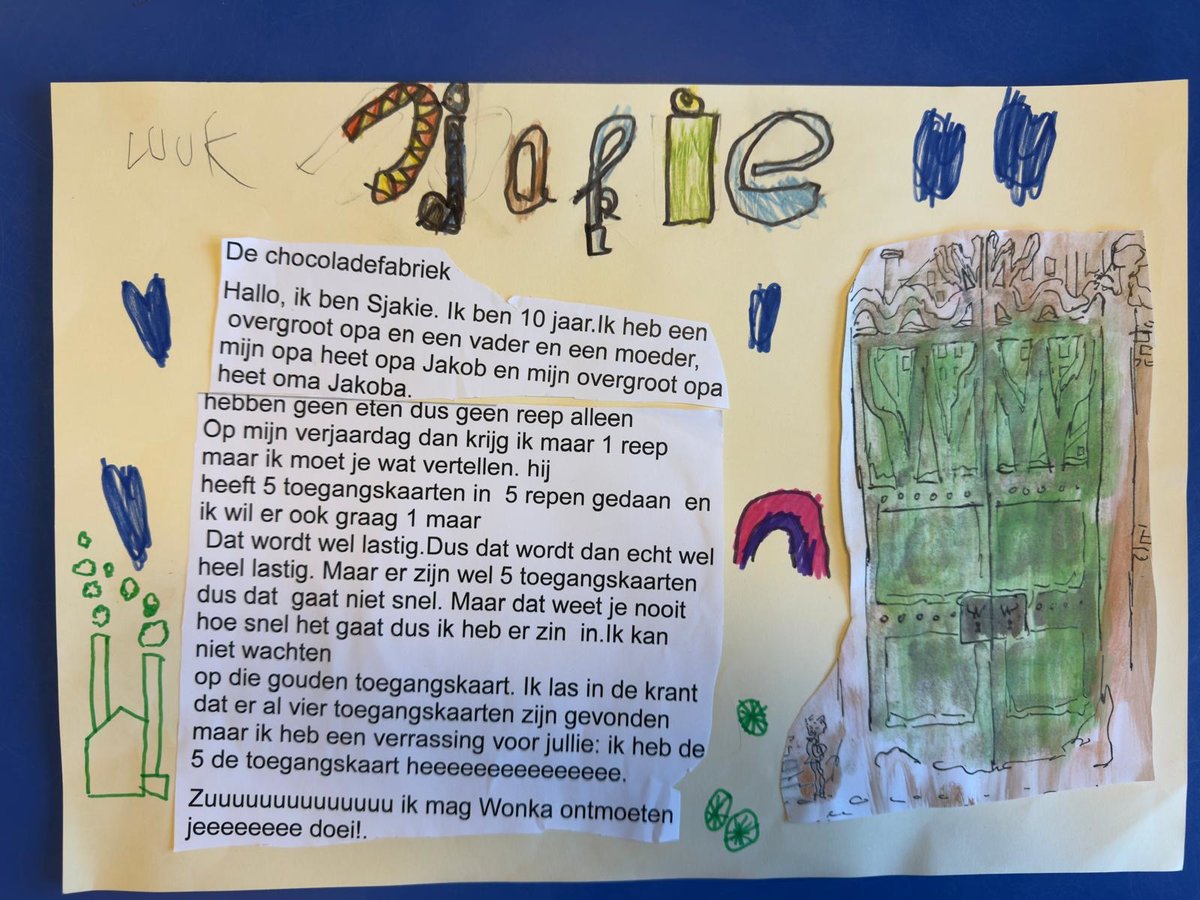 LUUK
Sjakie
De chocoladefabriek
Hallo, ik ben Sjakie. Ik ben 10 jaar.Ik heb een
overgroot opa en een vader en een moeder,
mijn opa heet opa Jakob en mijn overgroot opa
heet oma Jakoba.
hebben geen eten dus geen reep alleen
Op mijn verjaardag dan krijg ik maar 1 reep
maar ik moet je wat vertellen. hij
heeft 5 toegangskaarten in 5 repen gedaan en
ik wil er ook graag 1 maar
Dat wordt wel lastig.Dus dat wordt dan echt wel
heel lastig. Maar er zijn wel 5 toegangskaarten
dus dat gaat niet snel. Maar dat weet je nooit
hoe snel het gaat dus ik heb er zin in.Ik kan
niet wachten
op die gouden toegangskaart. Ik las in de krant
dat er al vier toegangskaarten zijn gevonden
maar ik heb een verrassing voor jullie: ik heb de
5 de toegangskaart heeeeeeeeeeeeeee.
Zuuuuuuuuuuuuuu ik mag Wonka ontmoeten
jeeeeeeee doei!.
W W